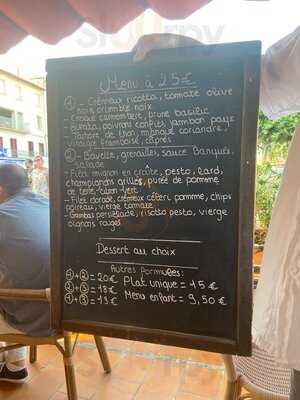 Menu à 25€
① - Crémeux ricotta, tomate olive
noix, crumble noix
- Croque camembert, brune basilic
- Burrata, poivron confits, jambon pays
- Tartare de thon, mangue coriandre,
vinaigre framboise, câpres
② - Bavette, grenailles, sauce Banyuls,
salade
- Filet mignon en croûte, pesto, lard,
champignons grillés, purée de pomme
de terre citron vert
- Filet dorade, crémeux céleri, pomme, chips
poireau, vierge tomate
- Gambas persillade, risotto pesto, vierge
oignons rouges
Dessert au choix
Autres formules:
①+② = 20€ Plat unique = 15€
②+③ = 18€ Menu enfant = 9,50€
①+③ = 13€